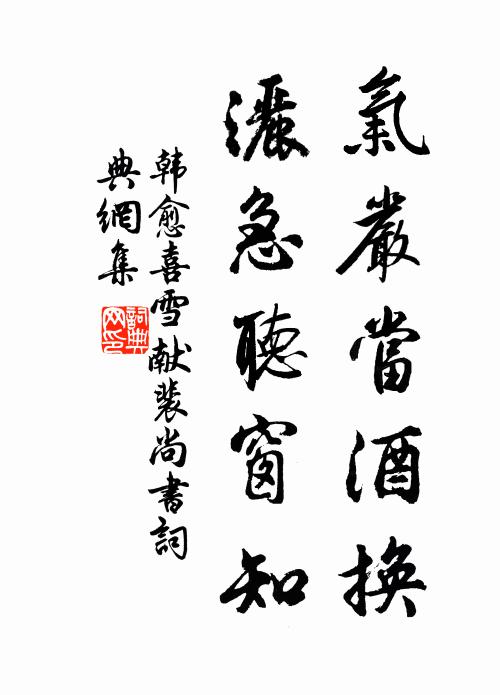 氣嚴當酒換
灑急聽窗知
韩愈喜雪献裴尚書詞
典網集
詞典
网印